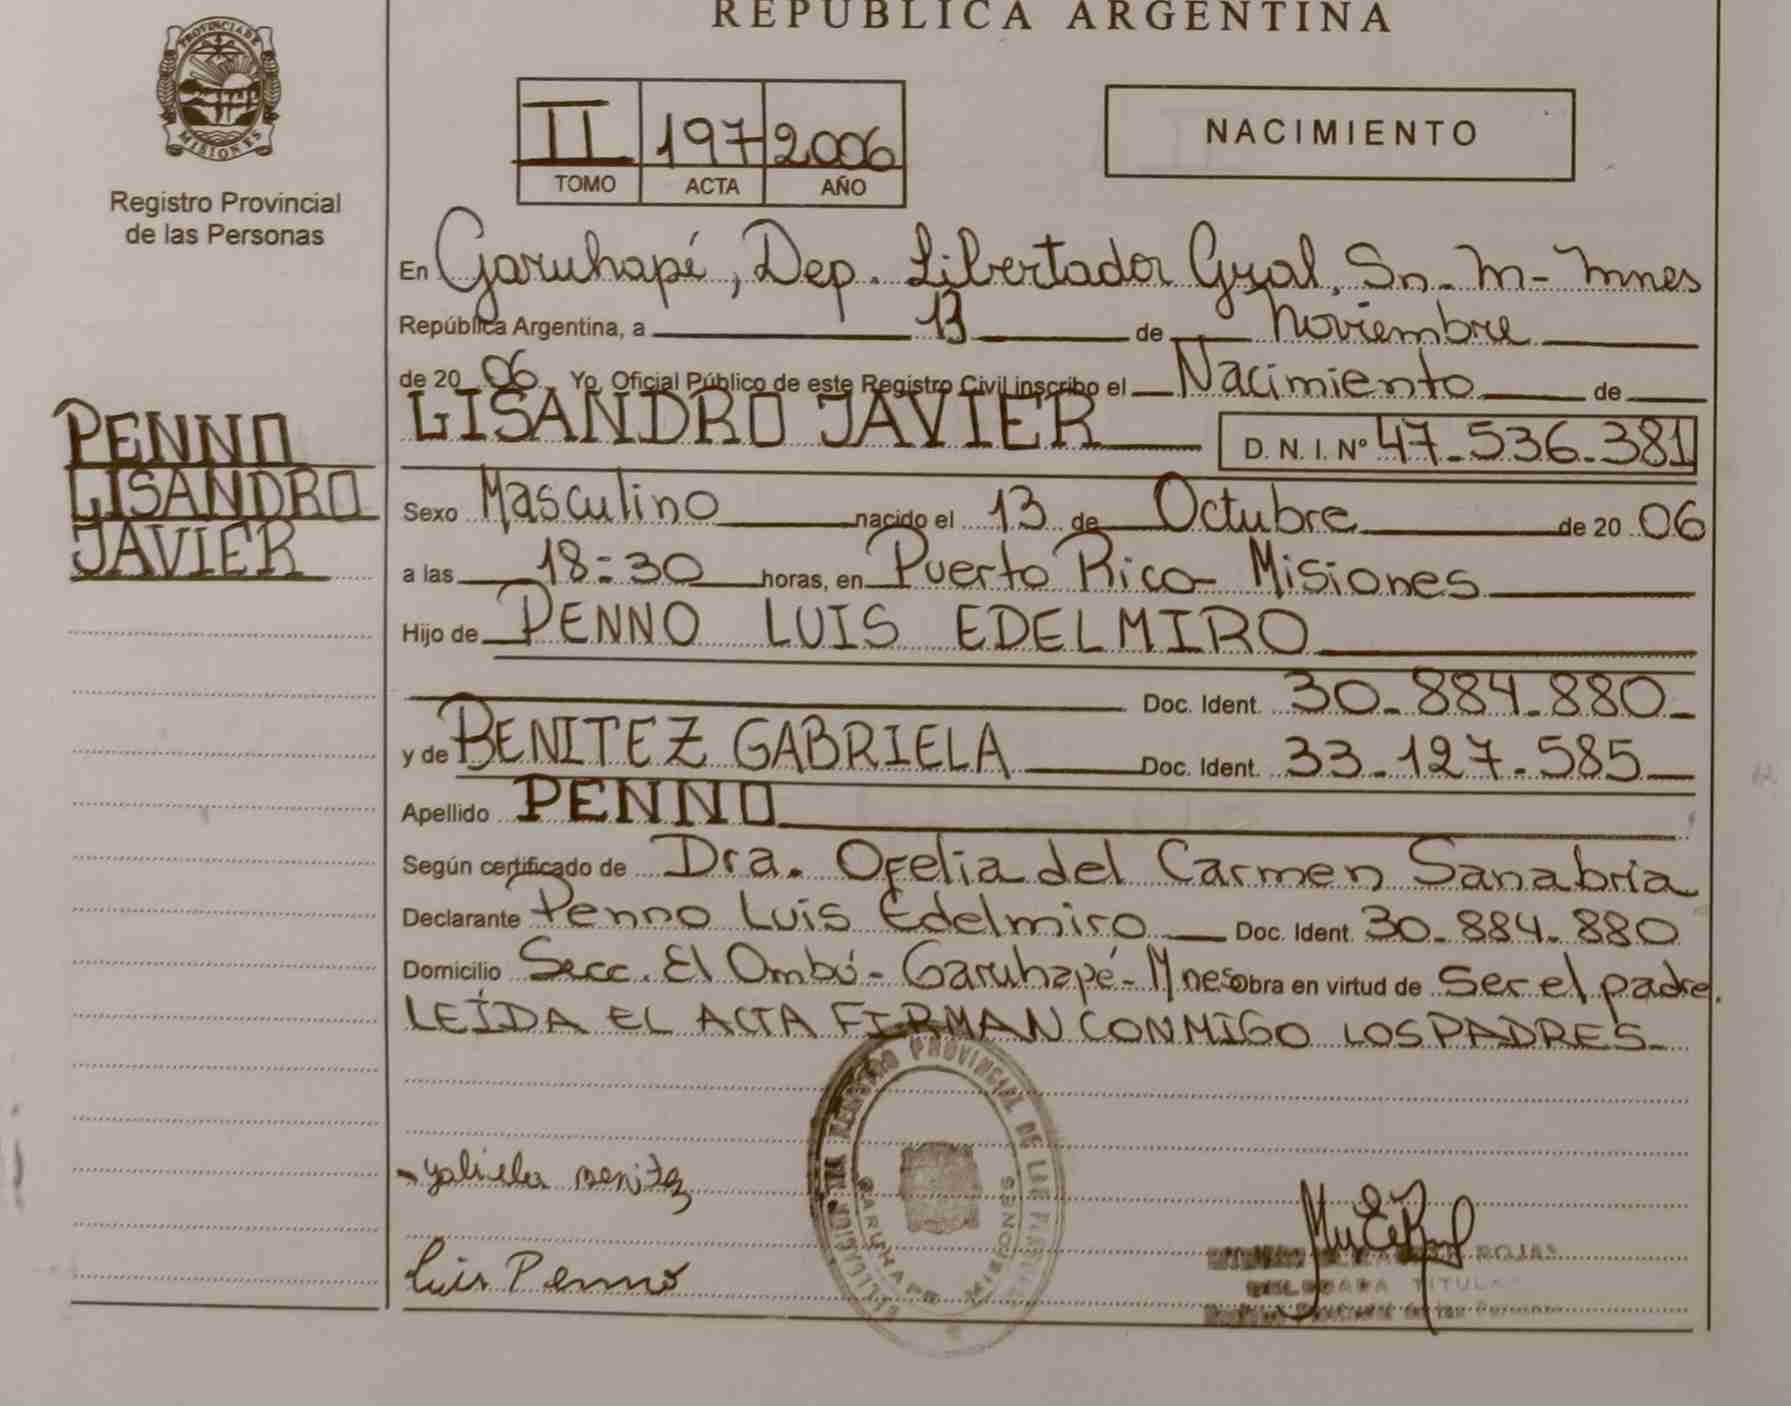 REPUBLICA ARGENTINA
PROVINCIA DE
MISIONES
Registro Provincial
de las Personas
II 197 2006
TOMO ACTA AÑO
NACIMIENTO
En Garuhapé, Dep. Libertador Gral. Sn. M- Mnes
República Argentina, a 13 de Noviembre
de 20 06 Yo, Oficial Público de este Registro Civil inscribo el Nacimiento de
LISANDRO JAVIER D. N. I. Nº 47-536-381
PENNO
LISANDRO
JAVIER
Sexo Masculino nacido el 13 de Octubre de 20 06
a las 18:30 horas, en Puerto Rico- Misiones
Hijo de PENNO LUIS EDELMIRO
Doc. Ident. 30-884-880-
y de BENITEZ GABRIELA Doc. Ident. 33-127-585
Apellido PENNO
Según certificado de Dra. Ofelia del Carmen Sanabria
Declarante Penno Luis Edelmiro Doc. Ident. 30-884-880
Domicilio Secc. El Ombú- Garuhapé- Mnes obra en virtud de Ser el padre.
LEÍDA EL ACTA FIRMAN CONMIGO LOS PADRES.
REGISTRO PROVINCIAL DE LAS
GARUHAPE MISIONES
Gabriela Benitez
Luis Penno
ROJAS
TITULAR